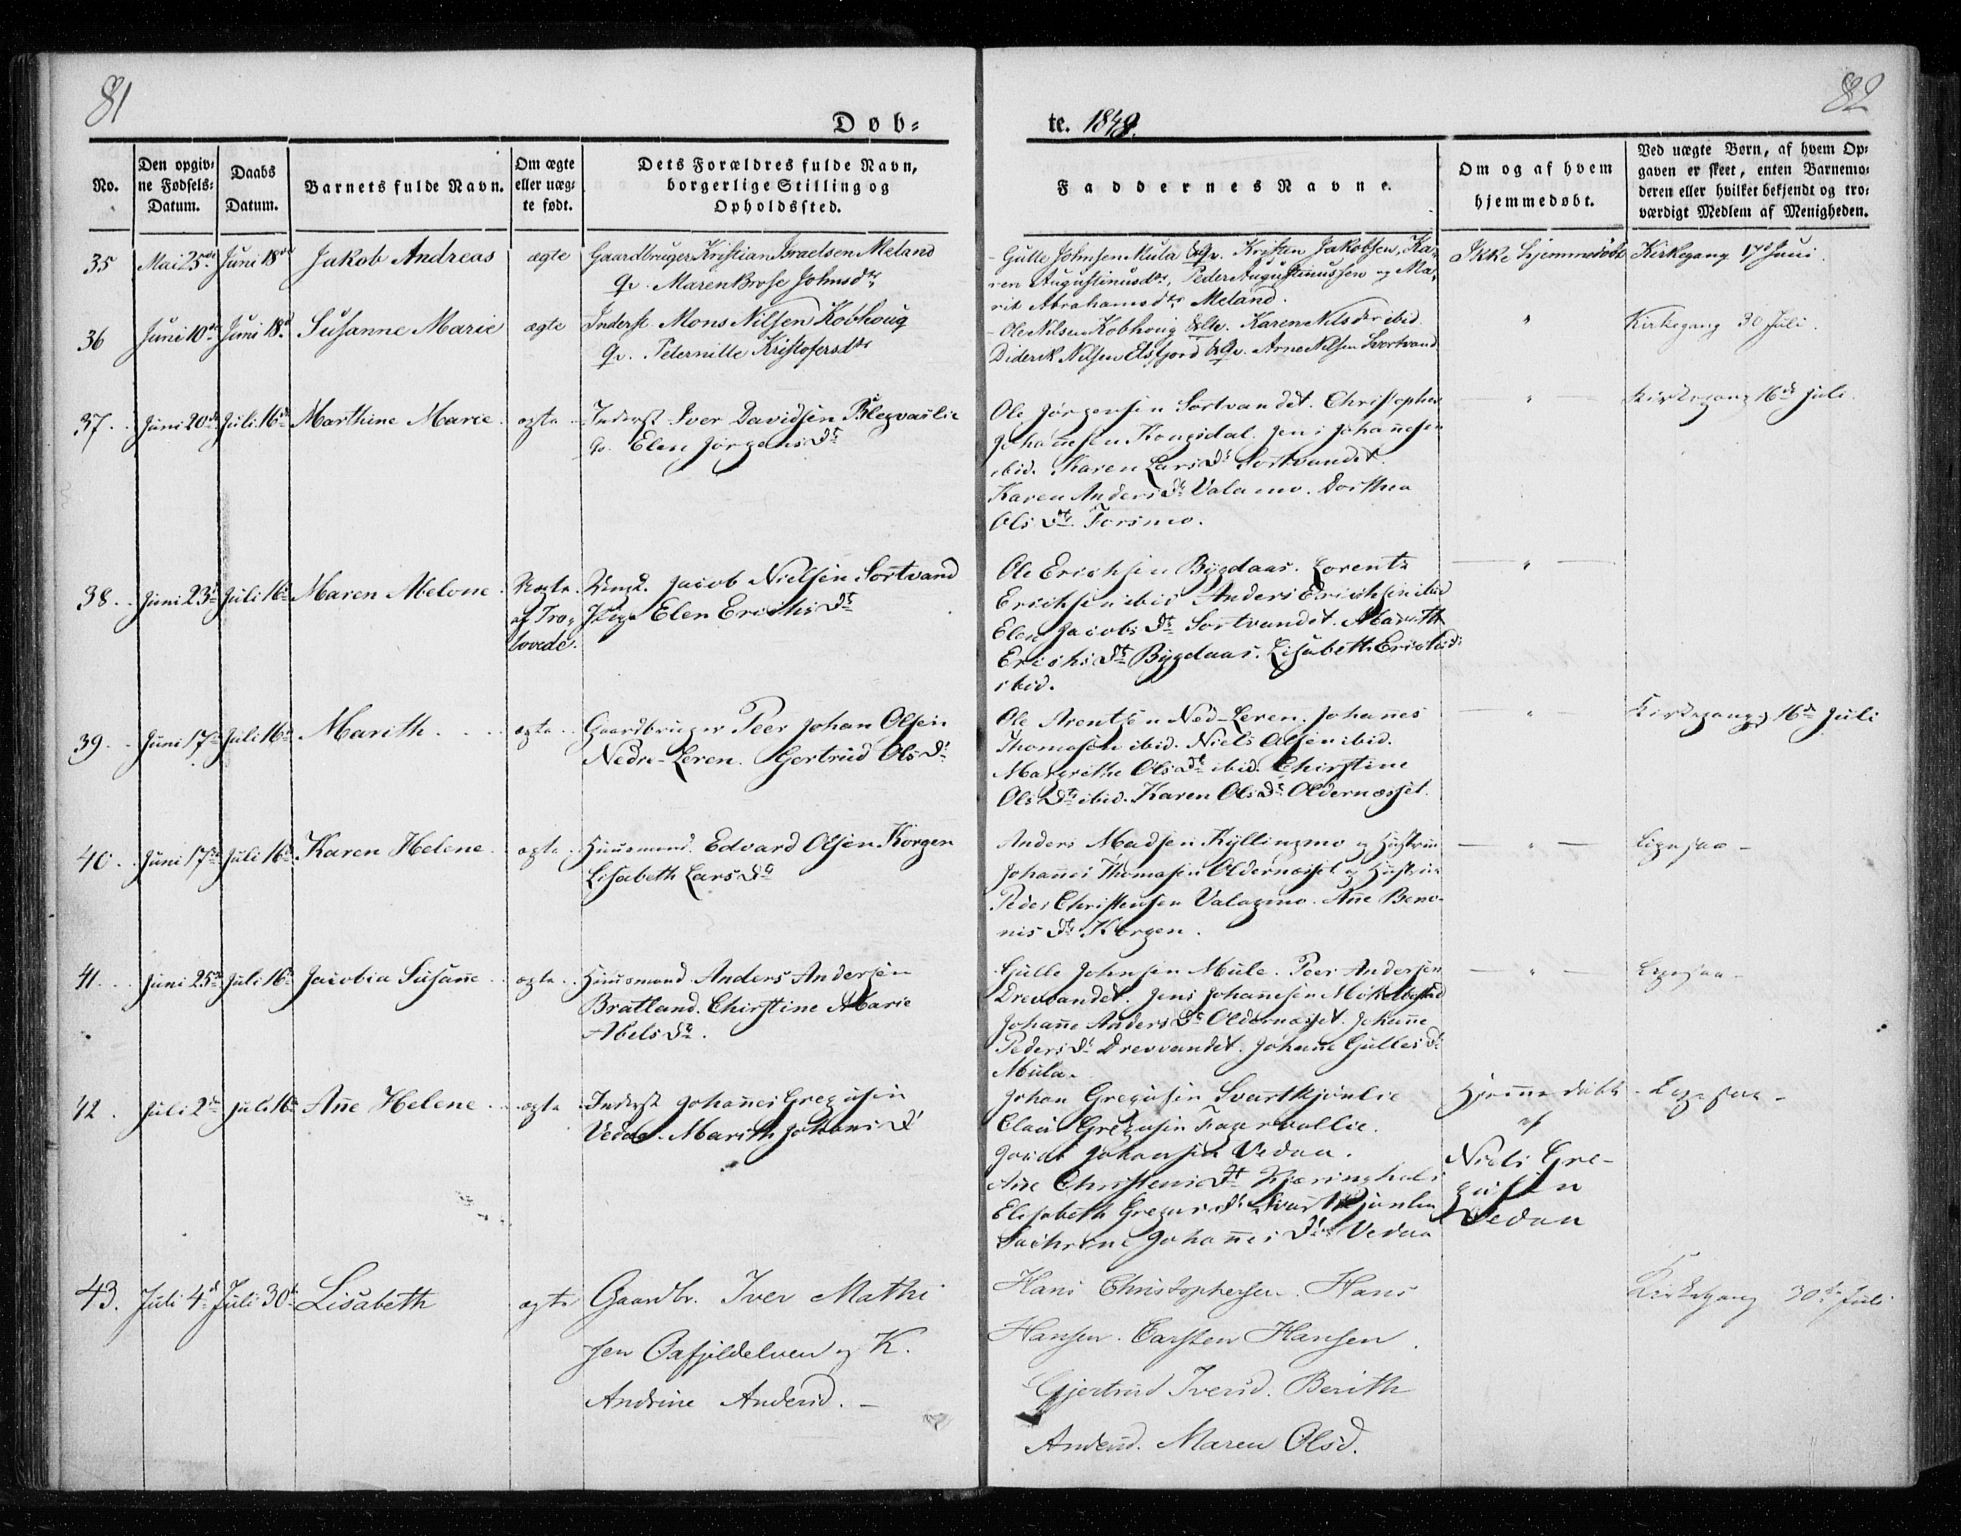 81
Døb=
No.
Den opgiv=
ne Fødsels=
Datum.
Daabs
Datum.
Barnets fulde Navn.
Om ægte
eller uæg=
te født.
Dets Forældres fulde Navn,
borgerlige Stilling og
Opholdssted.
35 Mai 25de Juni 18de Jakob Andreas ægte Gaardbruger Kristian Israelsen Meland
Qv. Maren Johnsdtr
36 Juni 10de Juni 18d Susanne Marie ægte Inderst Mons Nilsen Kobhoug
Qv. Peternille Kristofersdtr
37. Juni 20de Juli 16de Marthine Marie. ægte. Inderst Iver Davidsen
Qv. Elen Jørgensdr
38. Juni 23d Juli 16de Maren Melone. Uægte. Ungk. Jacob Nielsen Sortvand
af Tro- Pige Elen Erichsdr
lovede.
39. Juni 17de Juli 16de Marith. ægte. Gaardbruger Peer Johan Olsen
Nedre-Leren. Gjertrud Olsdr
40. Juni 17de Juli 16de Karen Helene. ægte. Huusmand. Edvard Olsen Korgen
Lisabeth Larsdr
41. Juni 25de Juli 16de Jacobia Susane. ægte. Huusmand Anders Andersen
Bratland. Chirstine Marie
Abelsdr.
42. Juli 2de Juli 16de Ane Helene. ægte Inderst Johanes Gregusen
Vedaa. Marith Johansd
43. Juli 4d Juli 30te Lisabeth ægte Gaardbr. Iver Mathi
sen Oafjeldelven og K.
Andrine Andersd. –
82
te. 1849.
Faddernes Navne.
Om og af hvem
hjemmedøbt.
Ved uægte Børn, af hvem Op=
gaven er skeet, enten Barnemo=
deren eller hvilket bekjendt og tro=
værdigt Medlem af Menigheden.
Gulle Johnsen Mula & Qv. Kristen Jakobsen, Ka- Ikke hjemmedøbt Kirkegang 17d Juni.
ren Augustinusdtr, Peder Augustinussen og Ma-
rit Abrahamsdtr Meland.
Ole Nilsen Kobhoug & Qv. Karen Nilsdtr ibid. " Kirkegang 30 Juli.
Diderik Nilsen Elsfjord & Qv. Arne Nilsen Svortvand
Ole Jørgensen Sortvandet. Christopher " Kirkegang 16de Juli.
Johannesen Kongsdal. Jens Johannesen
ibid. Karen Larsdr Sortvandet.
Karen Andersdr Valamo. Dorthea
Olsdtr Forsmo.
Ole Erichsen Bygdaas. Lorentz "
Erichsen ibid Anders Erichsen ibid
Elen Jacobsdr Sortvandet. Marith
Erichsdr Bygdaas. Lisabeth Erichsd:
ibid.
Ole Arentsen Ned-Leren. Johannes " Kirkegang 16de Juli
Thomasen ibid. Niels Olsen ibid.
Margrethe Olsdr ibid. Chirstine
Olsdr ibid. Karen Olsdr Oldernæsset.
Anders Madsen Kyllingmo og Hustrue " Ligesaa –
Johannes Thomasen Oldernæsset og Hustrue
Peder Christensen Valagmo. Ane Beno-
nisdr Korgen.
Gulle Johnsen Mula. Peer Andersen " Ligesaa –
Drevvandet. Jens Johannesen
Johanne Andersdr Oldernæsset. Johanne
Pedersdr Drevvandet. Johanne Gullesdr
Mula.
Johan Gregusen Svartkjønlie Hjemmedøbt Ligesaa –
Claus Gregusen Fagervollie. af
Johansen Vedaa. Niels Gre-
Ane Christensdr Kjæringhals gusen
Elisabeth Gregusdr Svartkjønlie Vedaa
Johannesdr Vedaa
Hans Christophersen. Hans Kirkegang 30te Juli
Hansen. Carsten Hansen.
Gjertrud Iversd. Berith
Andersd. Maren Olsd.